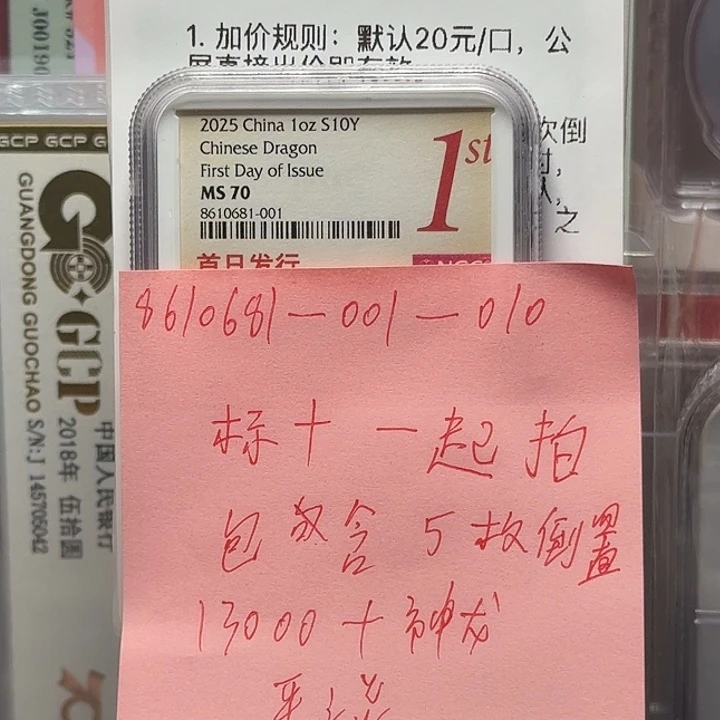 J00190
1. 加价规则：默认20元/口，公
屏直接出价即有效
次倒
之
2025 China 1oz S10Y
Chinese Dragon
First Day of Issue
MS 70
8610681-001
1st
首日发行
NGC
GCP GCP G
GUANGDONG GUOCHAO S/N:J 145705042
GCP
中国人民银行
2018年 伍拾圆
8610681-001-010
标十一起拍
包含5枚倒置
13000十神龙